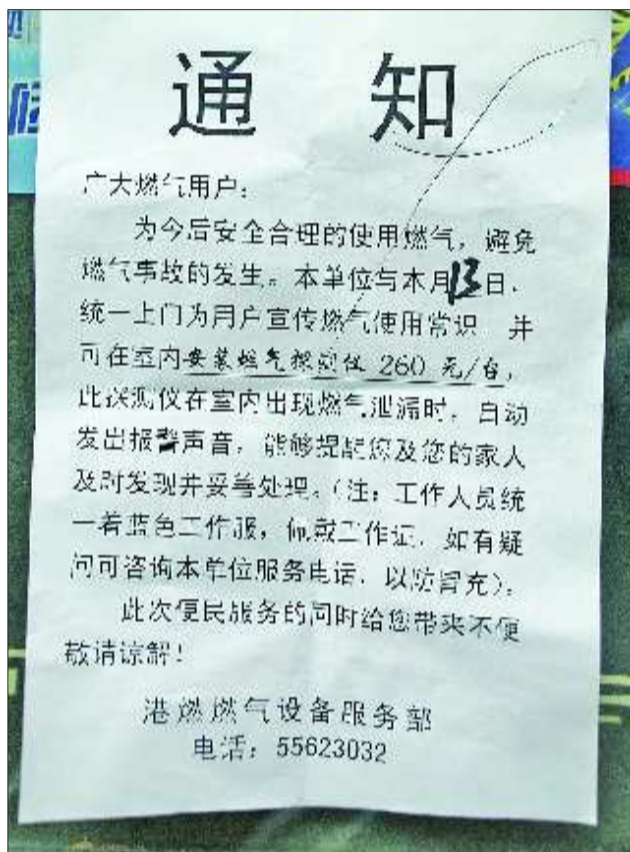 通知
广大燃气用户：
为今后安全合理的使用燃气，避免
燃气事故的发生。本单位与本月13日，
统一上门为用户宣传燃气使用常识 并
可在室内安装燃气探测仪 260 元/台，
此探测仪在室内出现燃气泄漏时，自动
发出报警声音，能够提醒您及您的家人
及时发现并妥善处理。（注：工作人员统
一着蓝色工作服，佩戴工作证，如有疑
问可咨询本单位服务电话，以防冒充）。
此次便民服务的同时给您带来不便
敬请谅解！
港燃燃气设备服务部
电话：55623032